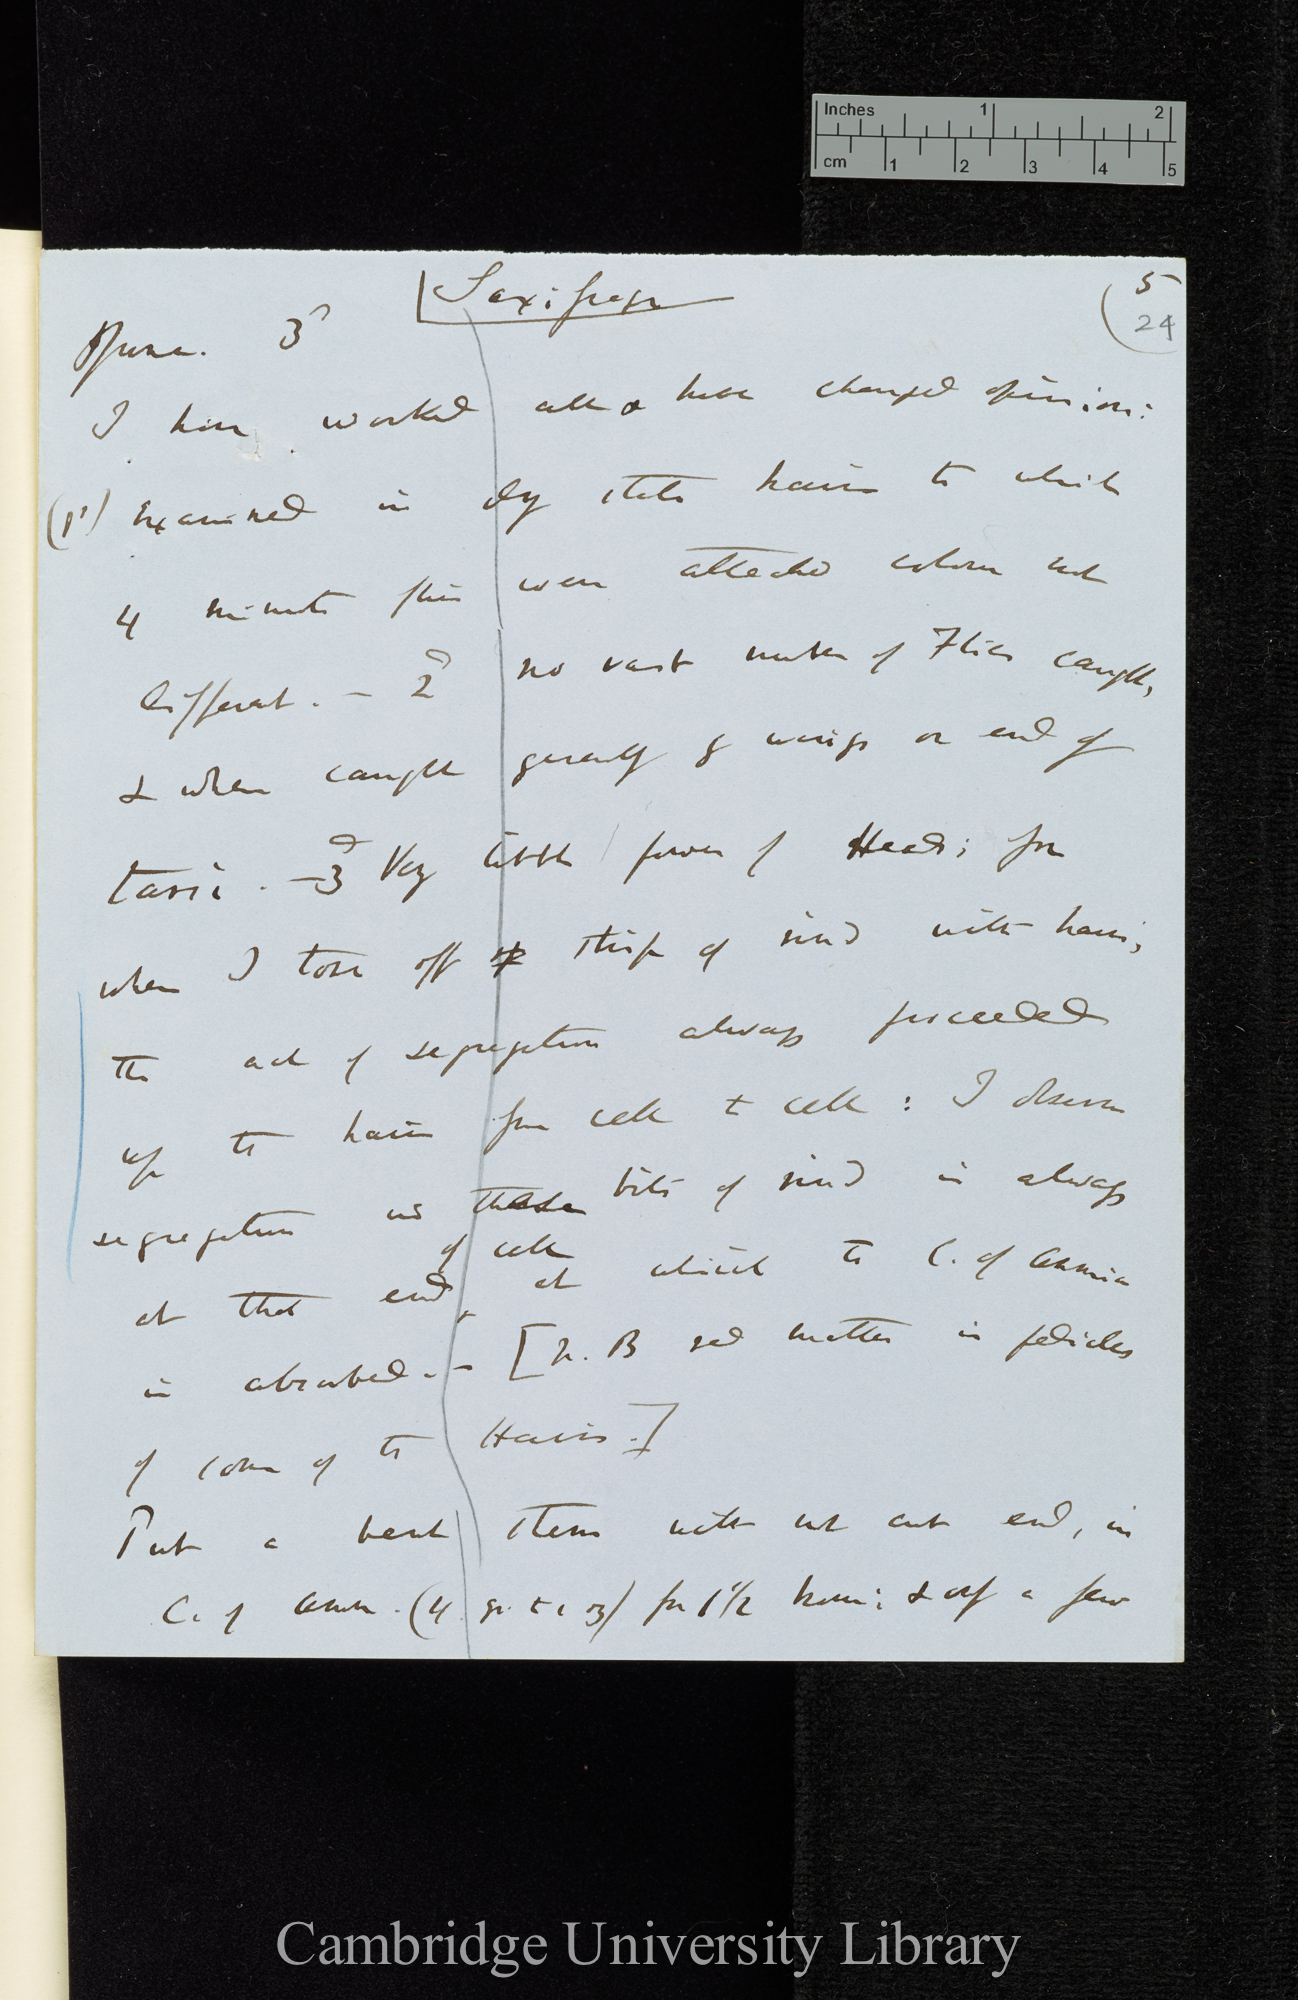 Inches 1 2
cm 1 2 3 4 5
Saxifraga
5
24
June. 3d
I have worked all & have changed opinion:
(1st) Examined in dry state hairs to which
4 minute flies were attached colour not
different. — 2d no vast number of Flies caught,
& when caught generally by wings or end of
tarsi. — 3d Very little power of Heads; for
when I tore off strip of rind with hairs,
the act of segregation always proceeded
up the hairs from cell to cell: I observe
segregation in these bits of rind is always
of cell
at that end, at which the C. of Ammonia
is absorbed. — [N.B red matter in pedicles
of some of the Hairs.]
Put a bent stem with not cut end, in
C. of Ammon. (4 gr. to 1 oz) for 1 1/2 hour; & only a few
Cambridge University Library